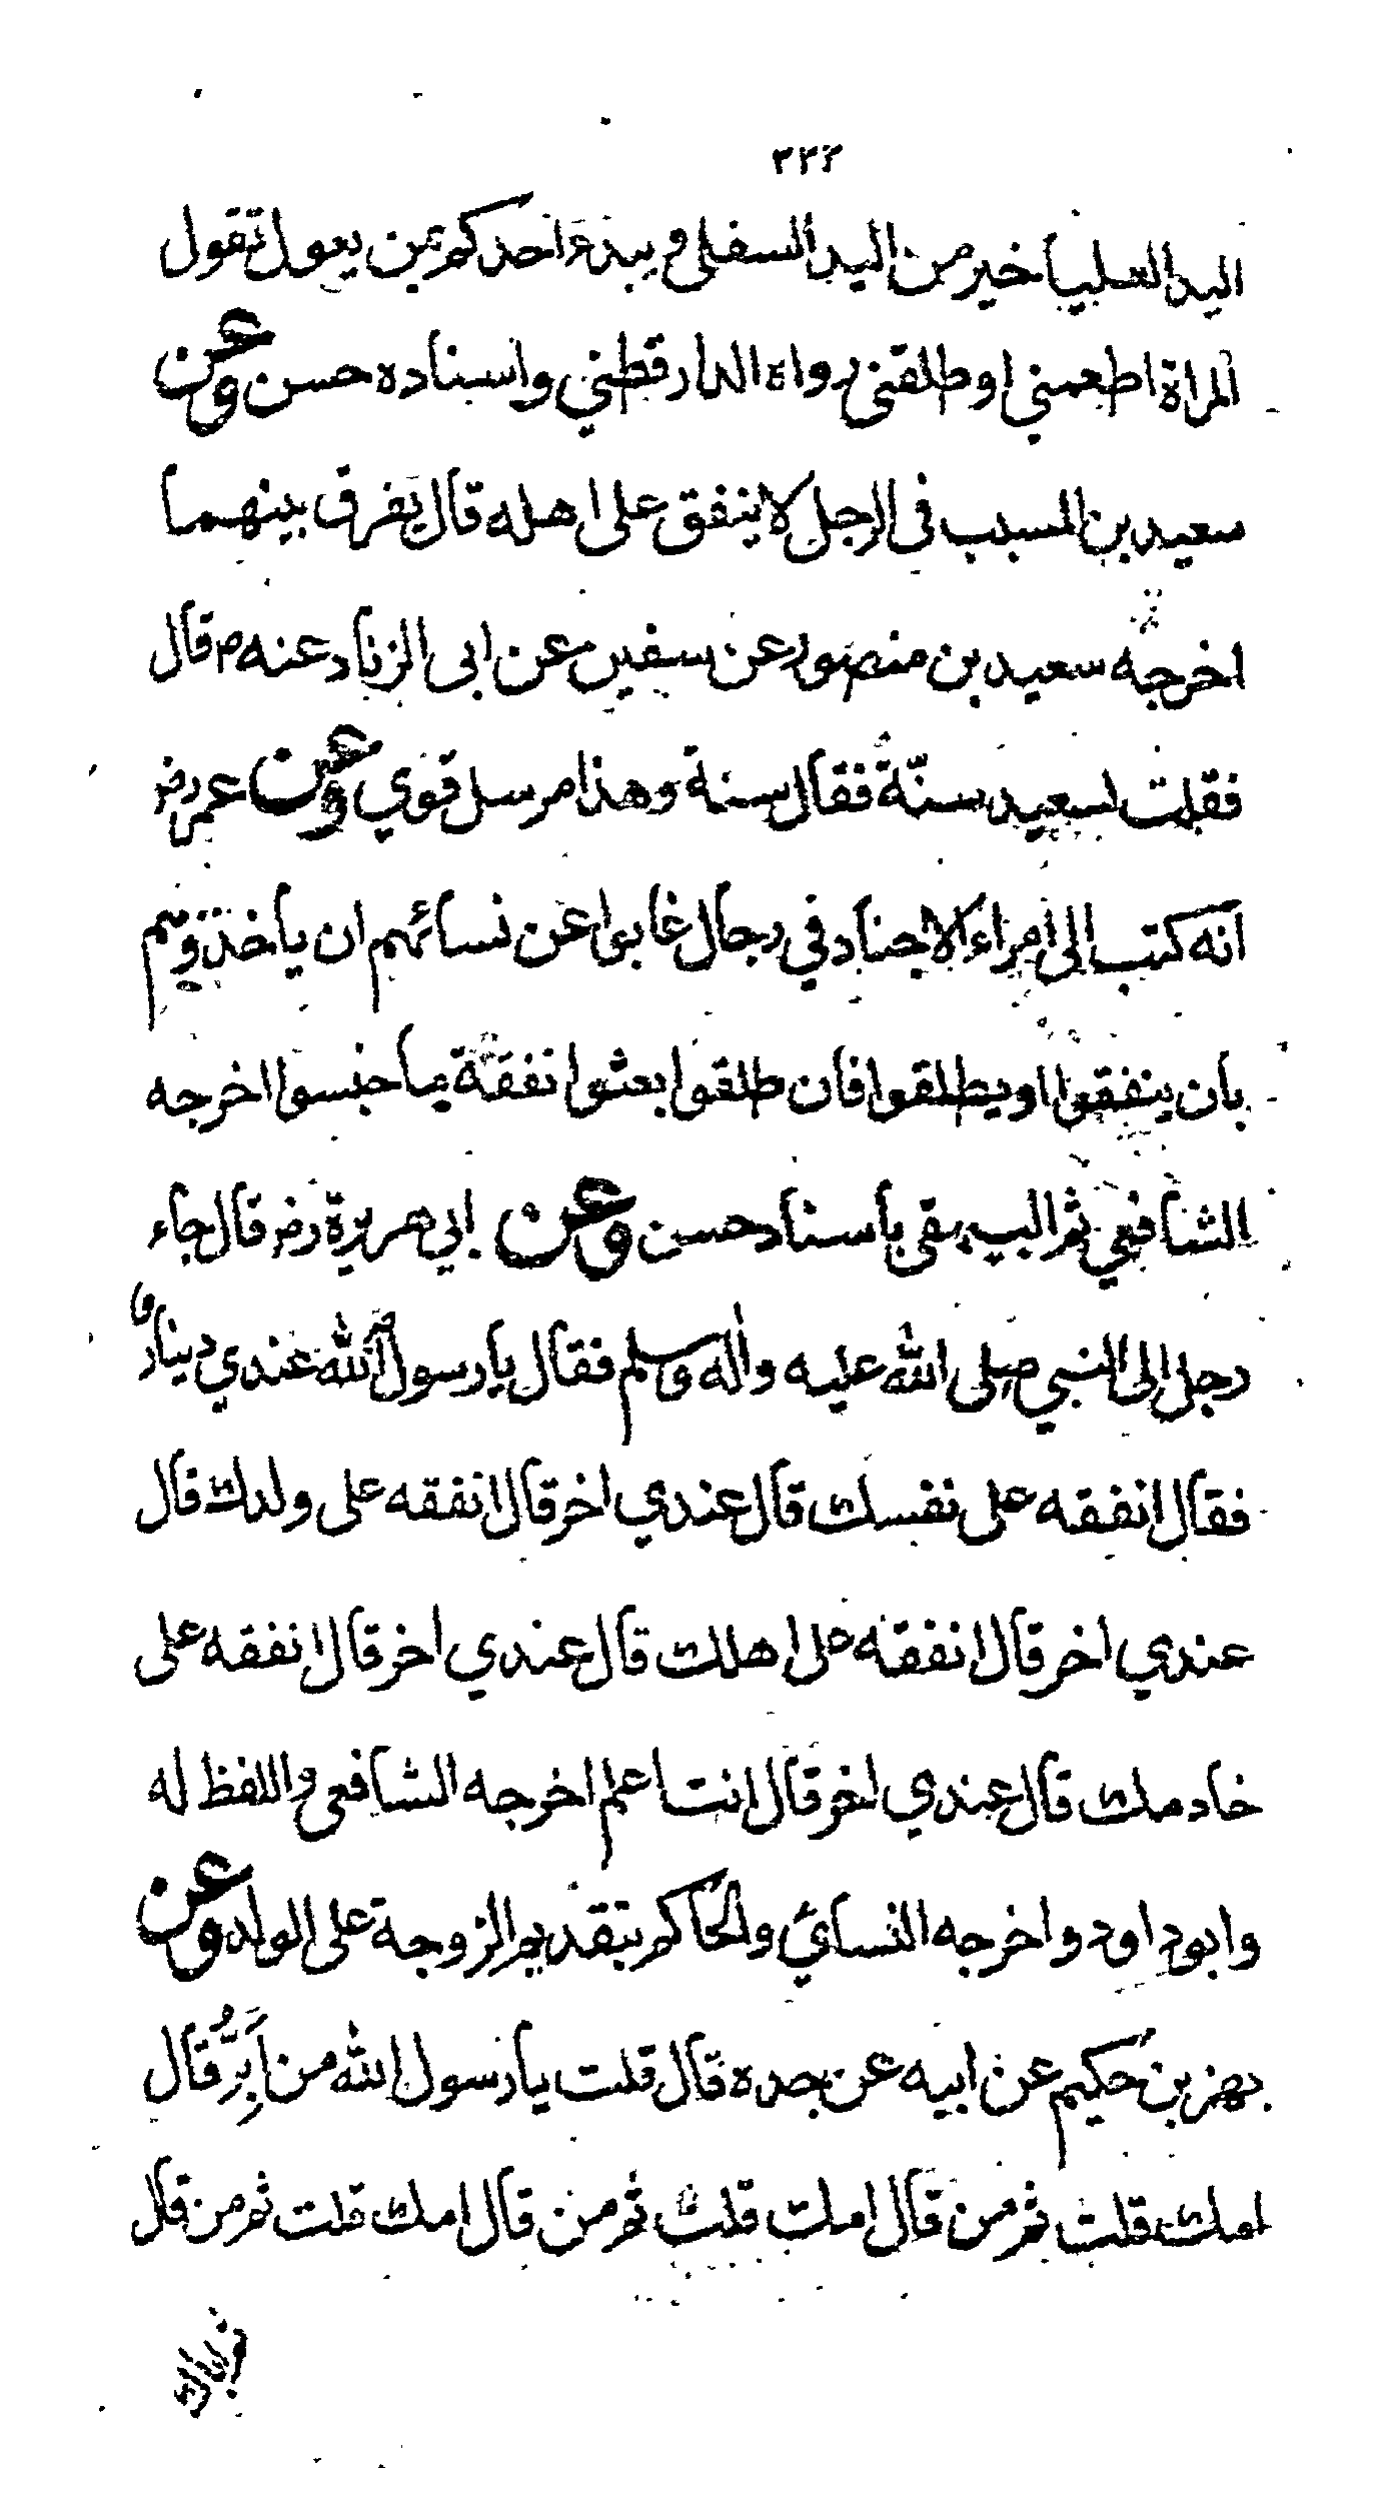 ٢٢٢
اليد العليا خير من اليد السفلى و يبدء احدكم بمن يعول تقول
المراة اطعمني او طلقنى رواه الدارقطني واسناده حسن وعن
سعيد بن المسيب فى الرجل لا ينفق على اهله قال يفرق بينهما
اخرجه سعيد بن منصور عن سفين عن ابى الزناد عنه قال
فقلت لسعيد سنّة فقال سنة وهذا مرسل قوي وعن عمر رضـ
انه كتب الى امراء الاجناد في رجال غابوا عن نسائهم ان ياخذوهم
بان ينفقوا او يطلقوا فان طلقوا بعثوا نفقة ما حبسوا اخرجه
الشافعي ثم البيهقى باسناد حسن وعن ابي هريرة رضـ قال جاء
رجل الى النبي صلى الله عليه واله وسلم فقال يا رسول الله عندي دينار
فقال انفقه على نفسك قال عندي اخر قال انفقه على ولدك قال
عندي اخر قال انفقه على اهلك قال عندي اخر قال انفقه على
خادمك قال عندي اخر قال انت اعلم اخرجه الشافعى واللفظ له
وابو داود واخرجه النسائي والحاكم بتقديم الزوجة على الولد وعن
بهز بن حكيم عن ابيه عن جده قال قلت يا رسول الله من اَبِرُّ قال
امك قلت ثم من قال امك قلت ثم من قال امك قلت ثم من قال